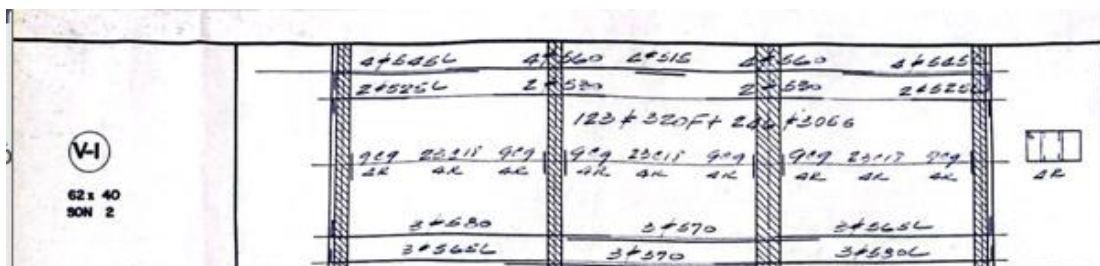 4#545L 4#560 4#515 4#560 4#545
2#525L 2#530 2#530 2#525L
123#320F+246#306G
V-1
9c9 23c18 9c9 9c9 23c18 9c9 9c9 23c18 9c9
4R 4R 4R 4R 4R 4R 4R 4R 4R 4R
62x40
SON 2
3#580 3#570 3#565L
3#565L 3#570 3#580L